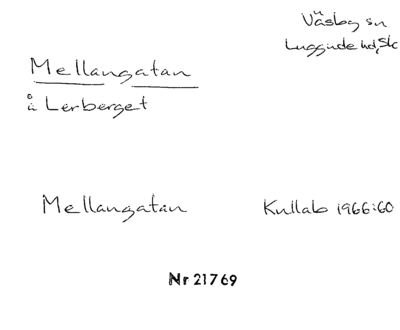 Väsby sn
Luggude hd, Sk
Mellangatan
å Lerberget
Mellangatan
Kullab 1966:60
Nr 21769